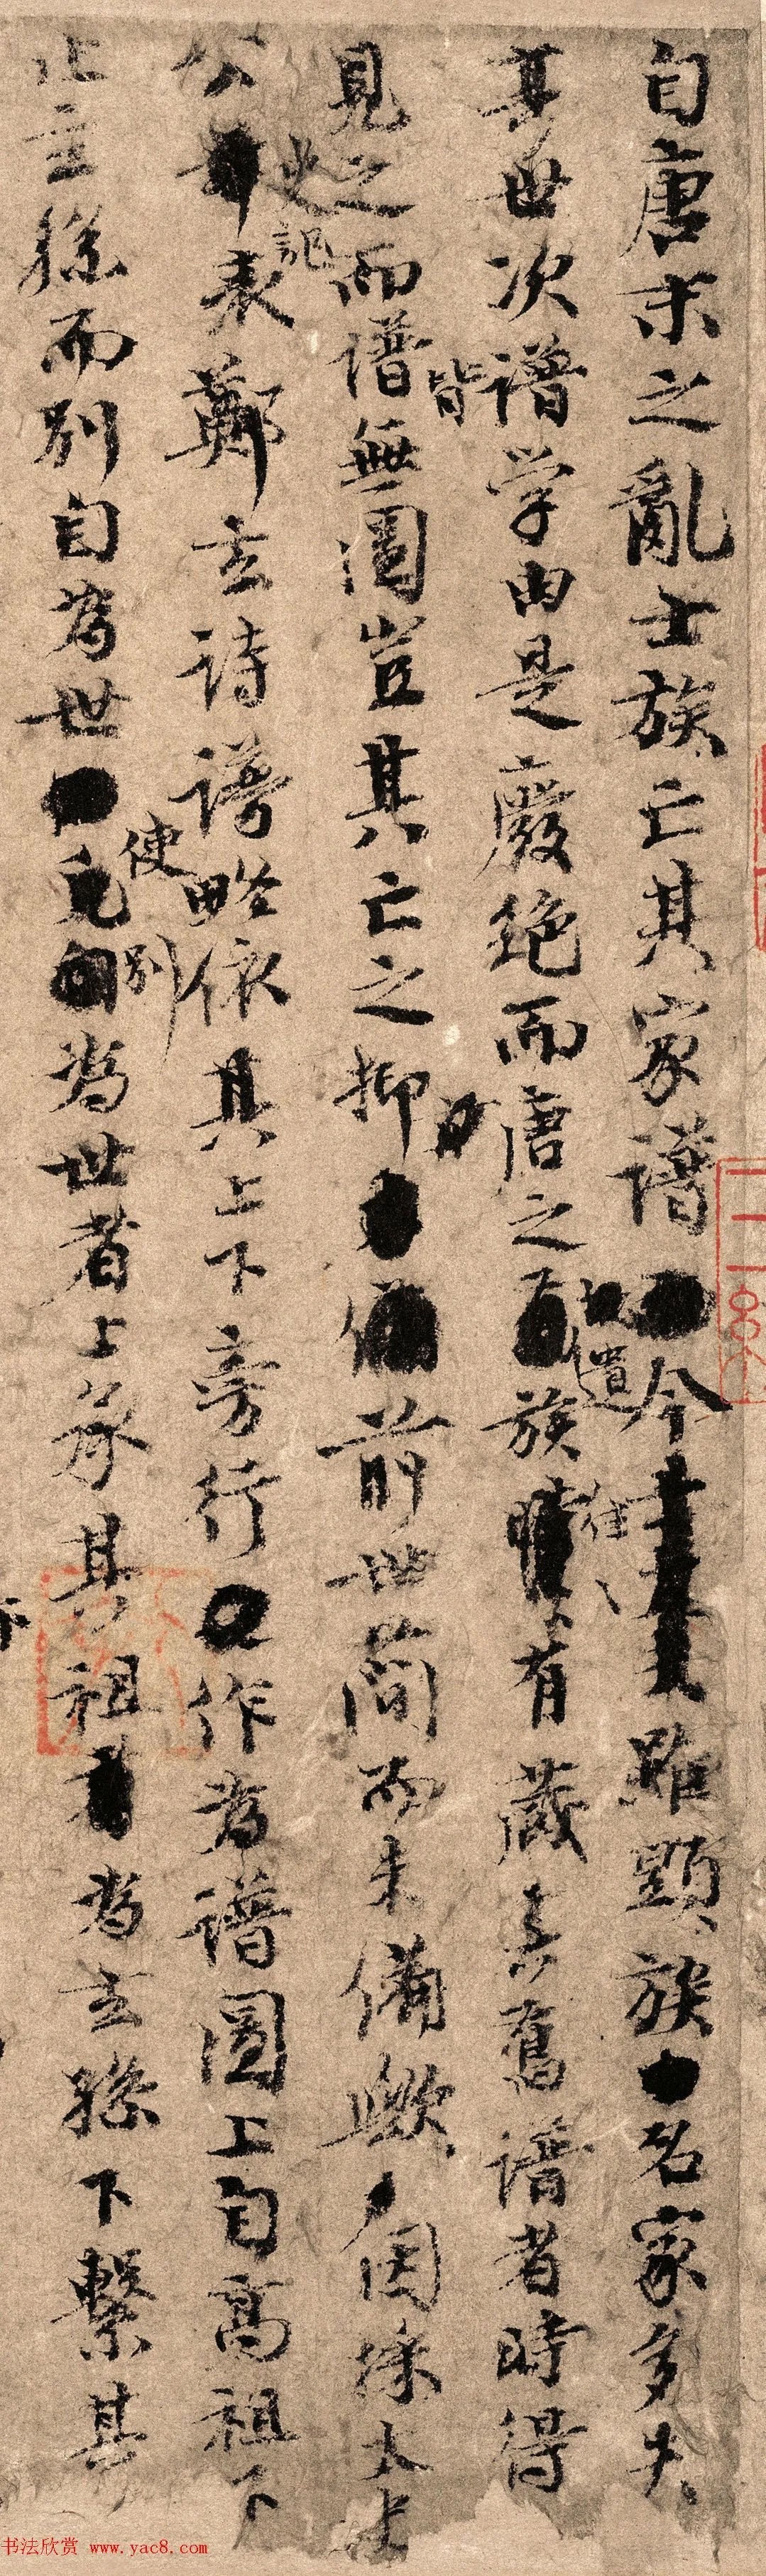 自唐末之亂士族亡其家譜今雖顯族名家多失
其世次譜学由是廢絶而唐之遺族往往有藏其舊譜者時得
見之而譜皆無圖豈其亡之抑前世簡而未備歟因採太史
公史記表鄭玄詩譜略依其上下旁行作為譜圖上自高祖下
止玄孫而別自為世使別為世者上承其祖為玄孫下繫其
书法欣赏 www.yac8.com